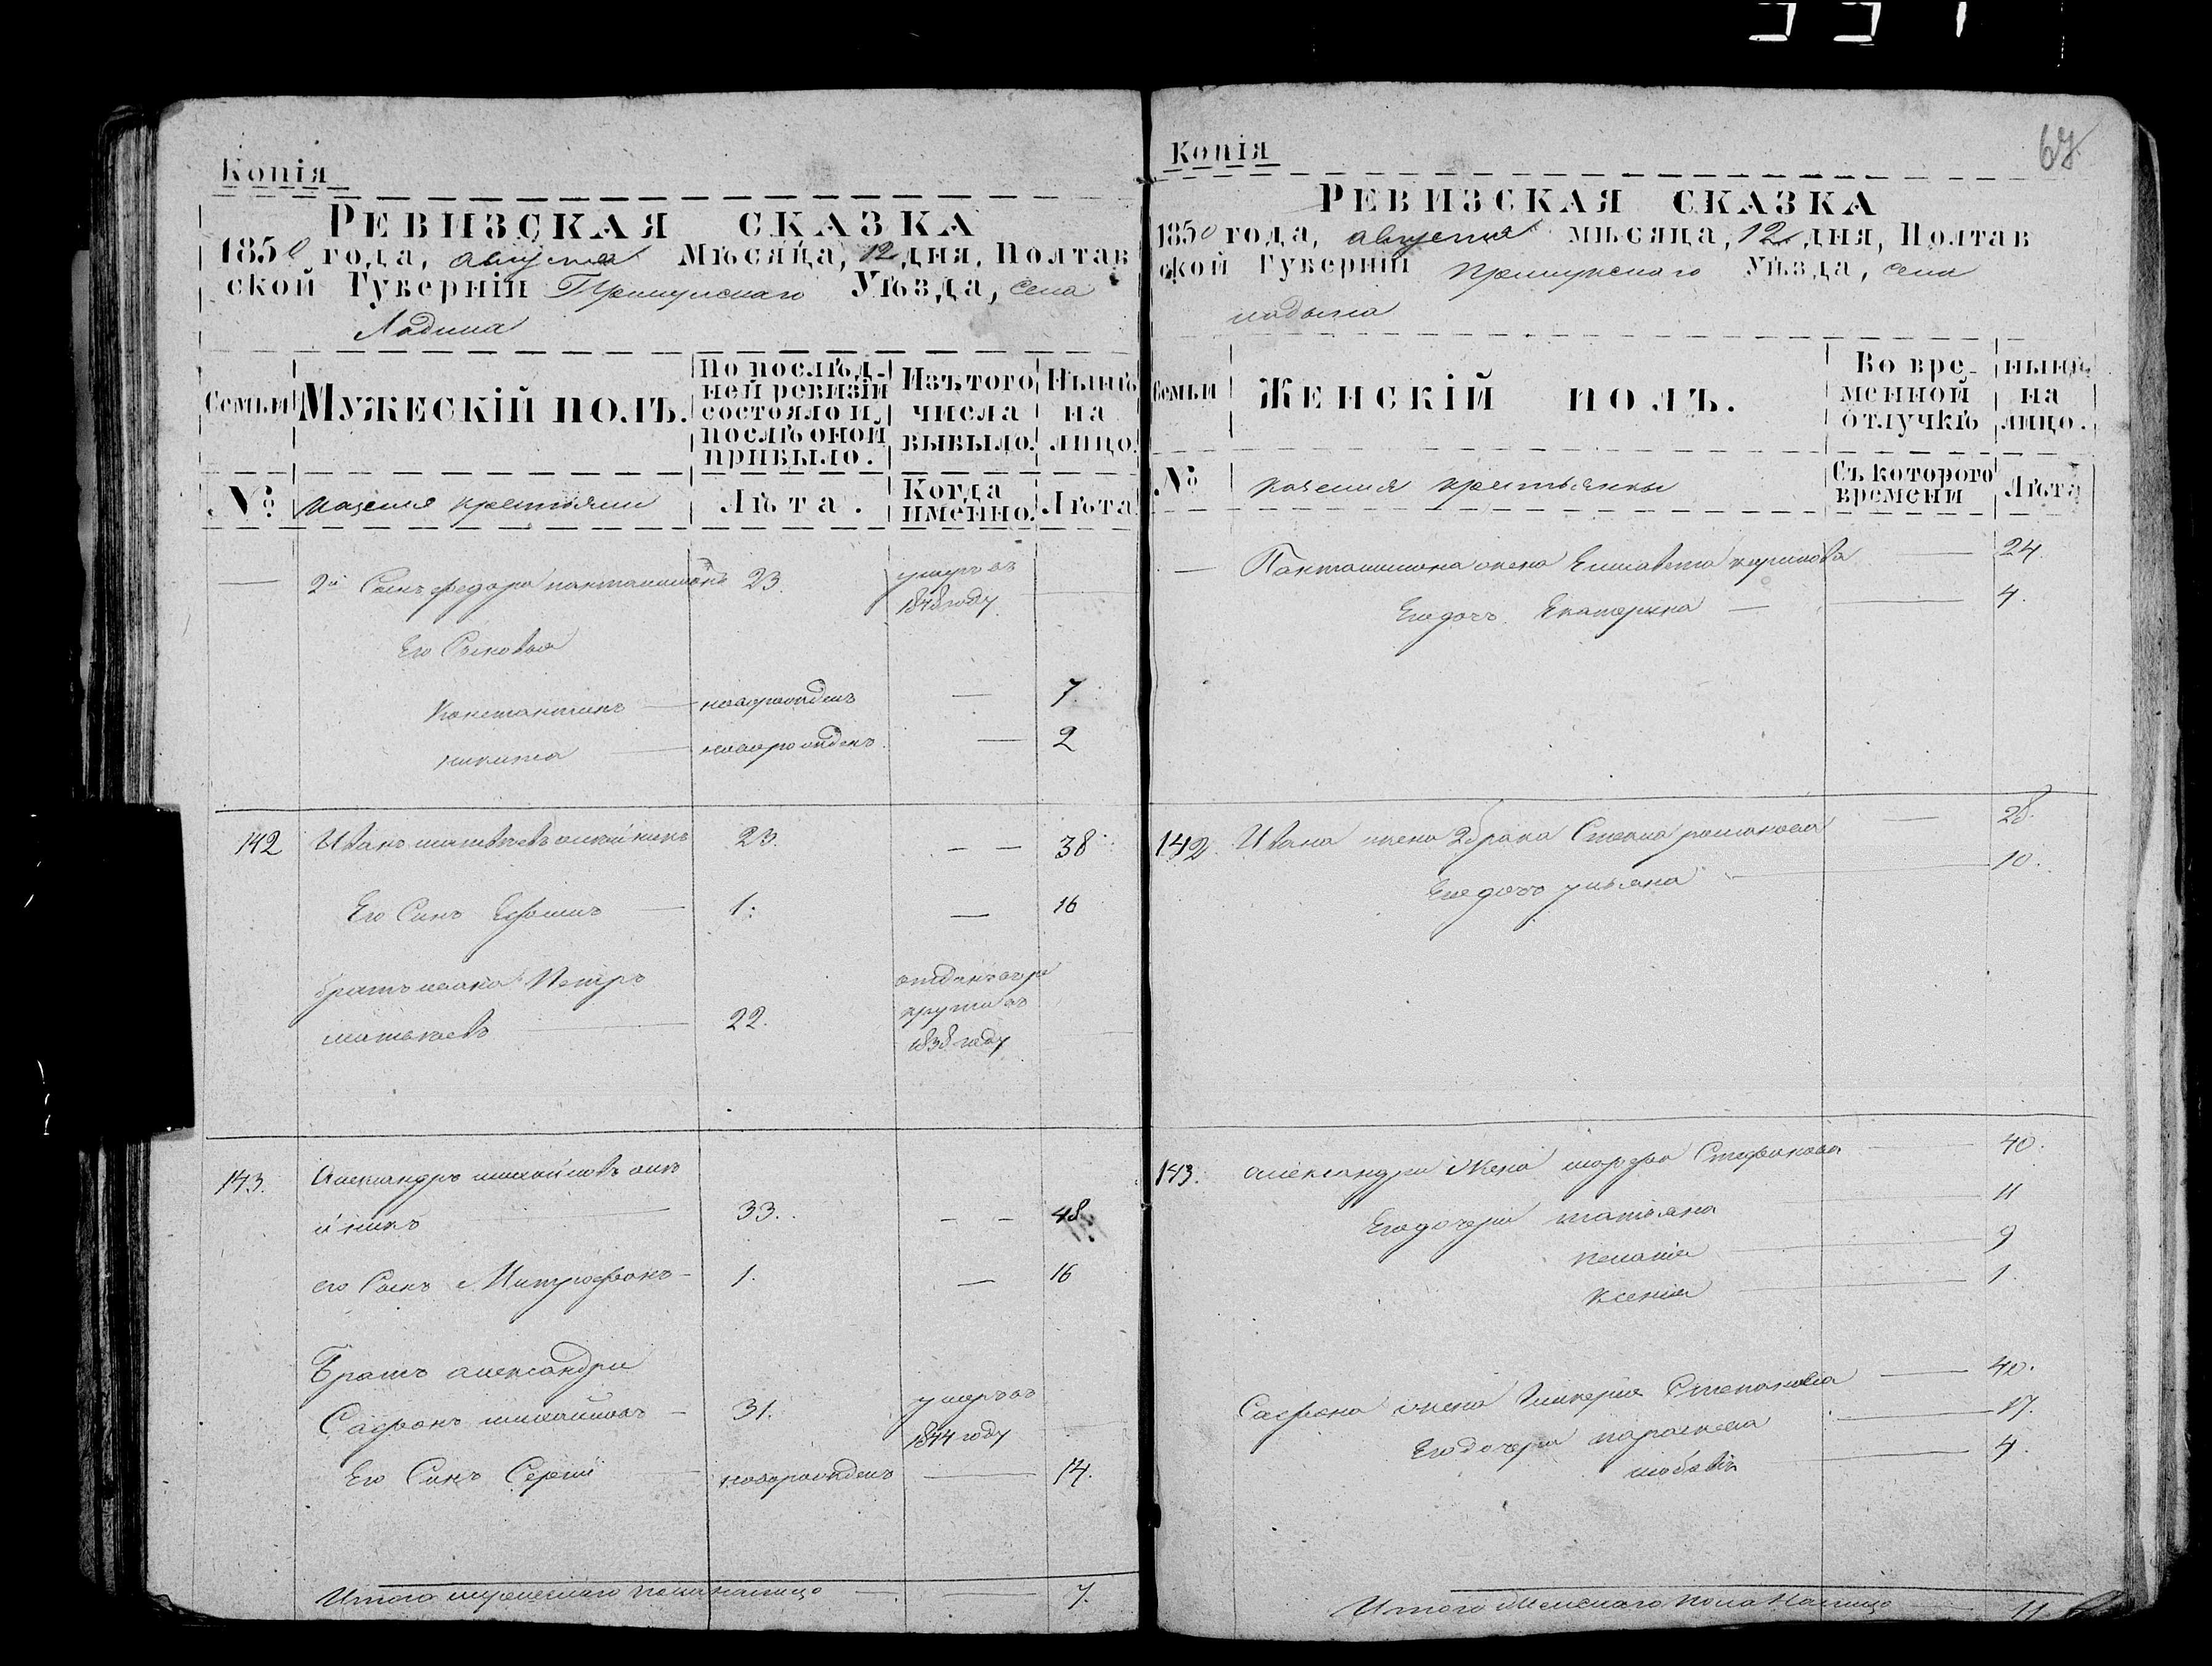 Копія
РЕВИЗСКАЯ СКАЗКА
1850 года, августа Мѣсяца, 12 дня, Полтав
ской Губерніи Прилукскаго Уѣзда, села
Ладина
Семьи
МУЖЕСКІЙ ПОЛЪ.
По послѣд-
ней ревизіи
состояло и
послѣ оной
прибыло.
Изъ того
числа
выбыло.
Нынѣ
на
лицо.
№
казенные крестьяне
Лѣта.
Когда
именно.
Лѣта
2й Сынъ федора пантелимонъ 23. умеръ въ
1848 году
Его Сыновья
Константинъ новорожденъ — 7.
никита новорожденъ — 2
142 Иванъ матвѣевъ олѣйникъ 23. — — 38
Его Сынъ Ефимъ 1. — 16
братъ ивана Петръ
матвѣевъ 22. отданъ въ ре
круты въ
1838 году
143. Александръ михайловъ олѣ
йникъ 33. — — 48
его Сынъ Митрофанъ 1. — 16
Братъ александра
Сафронъ михайловъ 31. умеръ въ
1844 году
Его Сынъ Сергій новорожденъ — 14.
Итого мужескаго пола налицо 7.
67
Копія
РЕВИЗСКАЯ СКАЗКА
1850 года, августа мѣсяца, 12 дня, Полтав
ской Губерніи Прилукскаго Уѣзда, села
ладина
Семьи
ЖЕНСКІЙ ПОЛЪ.
Во вре-
менной
отлучкѣ
нынѣ
на
лицо.
№
казенныя крестьянки
Съ котораго
времени
Лѣта
Пантелимона жена Елисавета — 24.
Его дочь Екатерина — 4.
142. Ивана жена 2 брака романова — 28.
Его дочь ульяна 10.
143. александра жена марфа Стефанова 40.
Его дочери татьяна 11
пелагія 9
ксенія 1.
Сафрона жена Гликерія Степанова 40.
Его дочери параскева 17.
любовь 4.
Итого Женскаго пола налицо 11